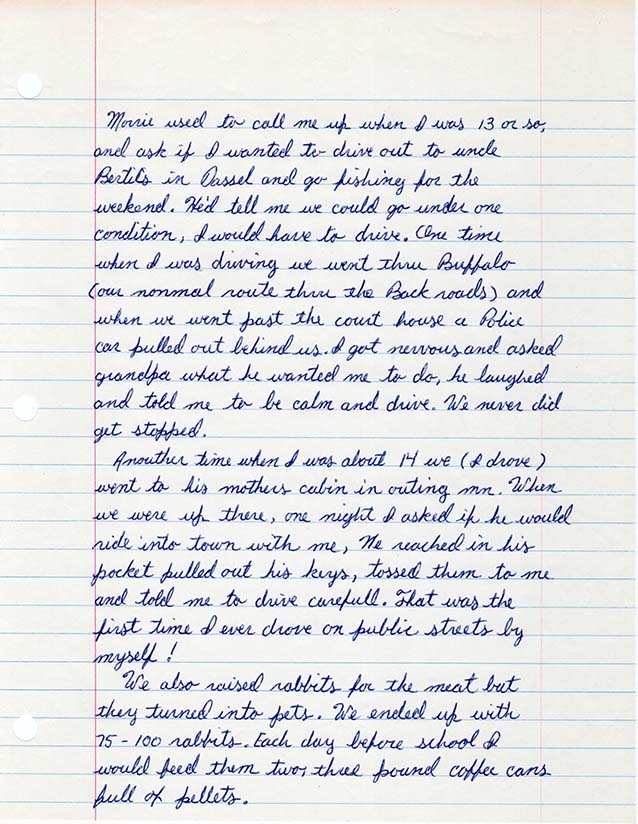 Morrie used to call me up when I was 13 or so,
and ask if I wanted to drive out to uncle
Bertil's in Dassel and go fishing for the
weekend. He'd tell me we could go under one
condition, I would have to drive. One time
when I was driving we went thru Buffalo
(our nonmal route thru the Back roads) and
when we went past the court house a Police
car pulled out behind us. I got nervous and asked
grandpa what he wanted me to do, he laughed
and told me to be calm and drive. We never did
get stopped.
Anouther time when I was about 14 we (I drove)
went to his mothers cabin in outing mn. When
we were up there, one night I asked if he would
ride into town with me, He reached in his
pocket pulled out his keys, tossed them to me
and told me to drive carefull. That was the
first time I ever drove on public streets by
myself!
We also raised rabbits for the meat but
they turned into pets. We ended up with
75-100 rabbits. Each day before school I
would feed them two, three pound coffee cans
full of pellets.